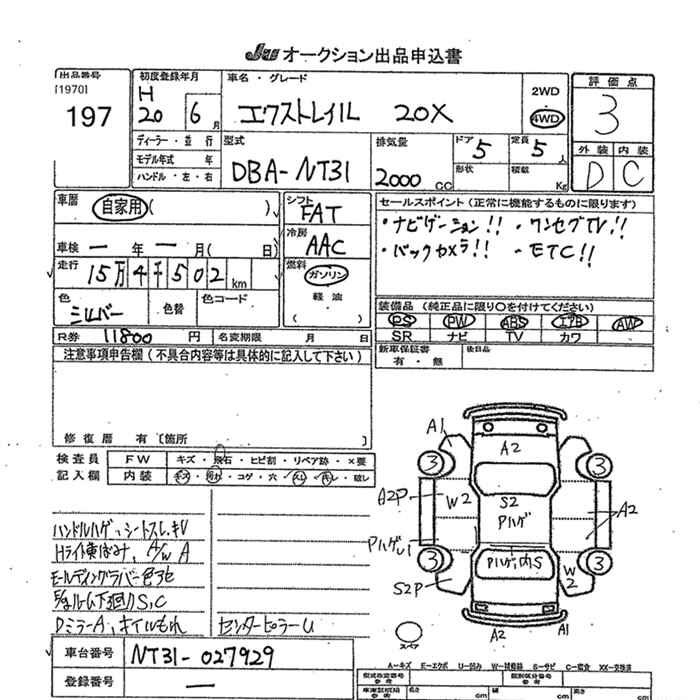 JU オークション出品申込書
出品番号
[1970]
197
初度登録年月
H
20 6 月
車名・グレード
エクストレイル 20X
2WD
4WD
評価点
3
外装 内装
D C
ディーラー・並行
モデル年式 年
ハンドル・左・右
型式
DBA-NT31
排気量
2000 CC
ドア 5
形状
定員 5 人
積載 Kg
車歴 自家用 ( )
車検 ー 年 ー 月 ( 日)
走行 15万4千502 km
色 シルバー
色替
色コード
シフト
FAT
冷房
AAC
燃料
ガソリン
軽油
( )
セールスポイント (正常に機能するものに限ります)
・ナビゲーション!! ・ワンセグTV!!
・バックカメラ!! ・ETC!!
装備品 (純正品に限り〇を付けてください)
PS PW ABS エアB AW
SR ナビ TV カワ
R券 11800 円
名変期限 月 日
新車保証書
有・無
後日品
注意事項申告欄 (不具合内容等は具体的に記入して下さい)
修復歴 有 [箇所 ]
検査員
記入欄
FW キズ・飛石・ヒビ割・リペア跡・×要
内装 キズ・汚れ・コゲ・穴・スレ・キレ・破レ
ハンドルハゲ、シートスレ、キレ
Hライト黄ばみ、A/W A
モールディングラバー色アセ
下廻りS,C
DミラーA、オイルもれ
センターピラーU
車台番号 NT31-027929
登録番号 ー
A1
A2
3
3
A2P
W2
S2
Pハゲ
A2
PハゲU1
Pハゲ内S
3
3
S2P
W2
A2
A1
スペア
A-キズ E-エクボ U-凹み W-補修跡 S-サビ C-腐食 XX-交換済
型式指定番号
類別区分番号
長さ cm
幅 cm
高さ cm